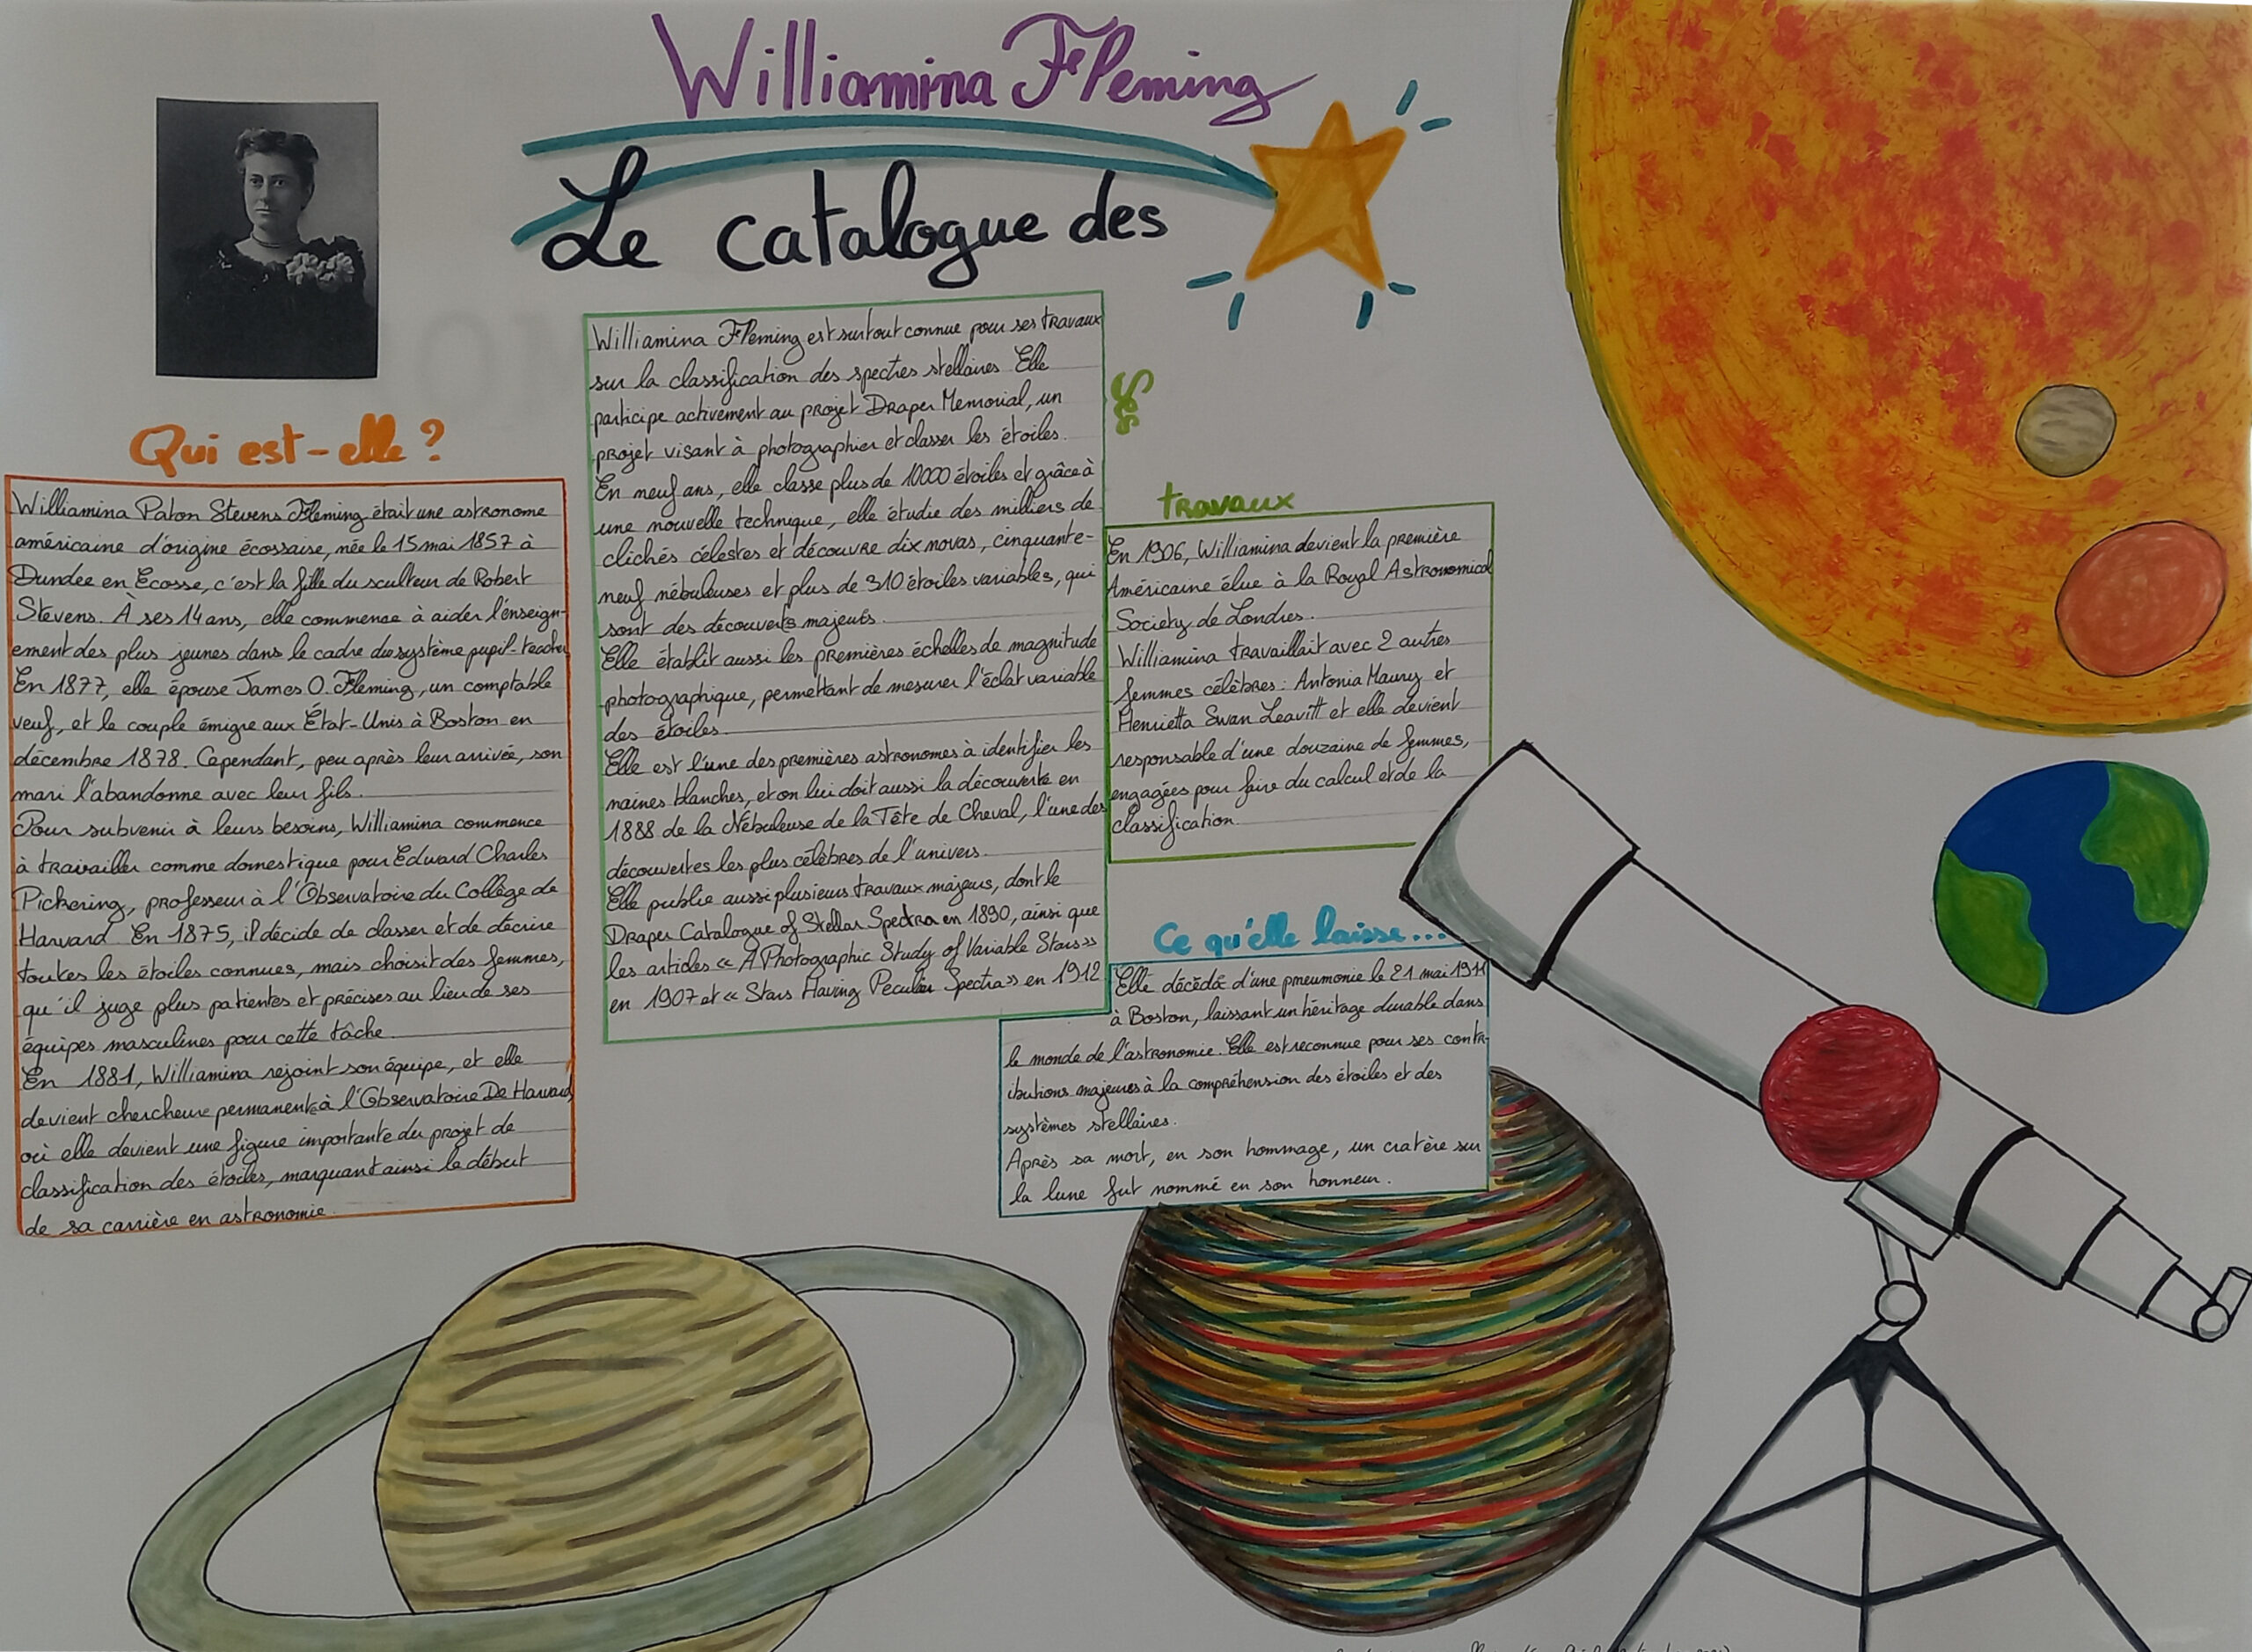 Williamina Fleming
Le catalogue des
Qui est-elle ?
Williamina Paton Stevens Fleming était une astronome
américaine d'origine écossaise, née le 15 mai 1857 à
Dundee en Ecosse, c'est la fille du sculteur de Robert
Stevens. À ses 14 ans, elle commence à aider l'enseign-
ement des plus jeunes dans le cadre du système pupil-teacher
En 1877, elle épouse James O. Fleming, un comptable
veuf, et le couple émigre aux État-Unis à Boston en
décembre 1878. Cependant, peu après leur arrivée, son
mari l'abandonne avec leur fils.
Pour subvenir à leurs besoins, Williamina commence
à travailler comme domestique pour Edward Charles
Pickering, professeur à l'Observatoire du Collège de
Harvard. En 1875, il décide de classer et de décrire
toutes les étoiles connues, mais choisit des femmes,
qu'il juge plus patientes et précises au lieu de ses
équipes masculines pour cette tâche.
En 1881, Williamina rejoint son équipe, et elle
devient chercheure permanente à l'Observatoire De Harvard
où elle devient une figure importante du projet de
classification des étoiles, marquant ainsi le début
de sa carrière en astronomie.
Williamina Fleming est surtout connue pour ses travaux
sur la classification des spectres stellaires Elle
participe activement au projet Draper Memorial, un
projet visant à photographier et classer les étoiles.
En neuf ans, elle classe plus de 10000 étoiles et grâce à
une nouvelle technique, elle étudie des milliers de
clichés célestes et découvre dix novas, cinquante-
neuf nébuleuses et plus de 310 étoiles variables, qui
sont des découverts majeurs.
Elle établit aussi les premières échelles de magnitude
photographique, permettant de mesurer l'éclat variable
des étoiles.
Elle est l'une des premières astronomes à identifier les
naines blanches, et on lui doit aussi la découverte en
1888 de la Nébuleuse de la Tête de Cheval, l'une des
découvertes les plus célèbres de l'univers.
Elle publie aussi plusieurs travaux majeurs, dont le
Draper Catalogue of Stellar Spectra en 1890, ainsi que
les articles « A Photographic Study of Variable Stars »
en 1907 et « Stars Having Peculiar Spectra » en 1912
Ses
travaux
En 1906, Williamina devient la première
Américaine élue à la Royal Astronomical
Society de Londres.
Williamina travaillait avec 2 autres
femmes célèbres : Antonia Maury et
Henrietta Swan Leavitt et elle devient
responsable d'une douzaine de femmes,
engagées pour faire du calcul et de la
classification.
Ce qu'elle laisse...
Elle décède d'une pneumonie le 21 mai 1911
à Boston, laissant un héritage durable dans
le monde de l'astronomie. Elle est reconnue pour ses contr-
ibutions majeures à la compréhension des étoiles et des
systèmes stellaires.
Après sa mort, en son hommage, un cratère sur
la lune fut nommé en son honneur.